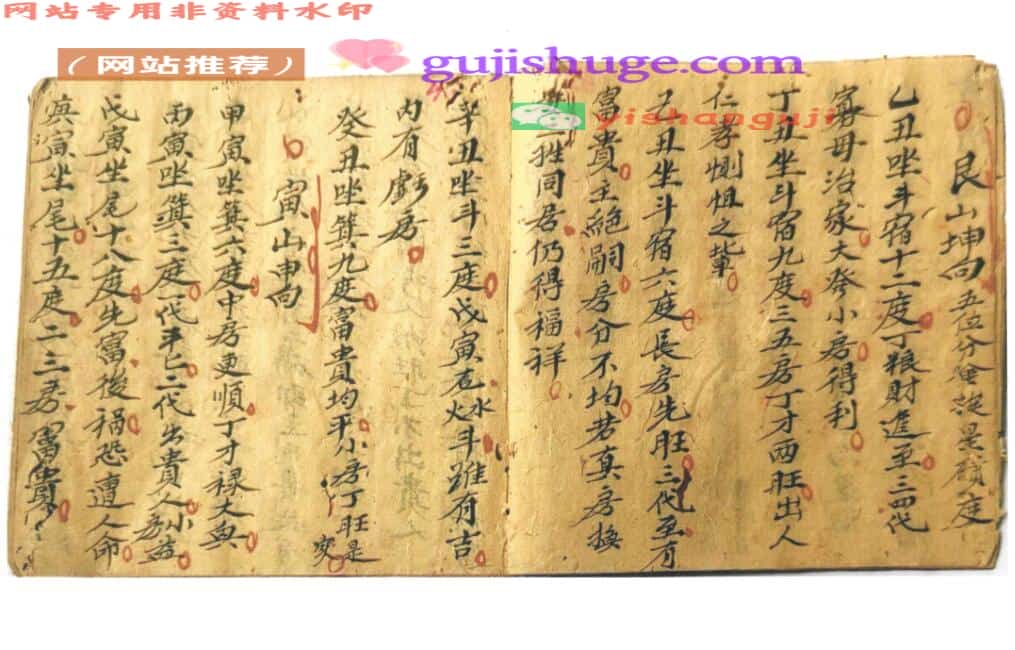 网站专用非资料水印
（网站推荐）
gujishuge.com
yishanguji
艮山坤向 五位分金
乙丑坐斗宿十二度丁粮财进至三四代
寡母治家大发小房得利
丁丑坐斗宿九度三五房丁才两旺出人
仁孝恻怛之辈
丑坐斗宿六度長房先旺三代至有
富贵主絶嗣房分不均若真房换
姓同居仍得福祥
辛丑坐斗三度戊寅水火斗雖有吉
内有虧房
癸丑坐箕九度富貴均平小房丁旺是
寅山申向
甲寅坐箕六度中房更順丁才禄大與
丙寅坐箕三度一代平已二代出貴人小房益
戊寅坐尾十八度先富後禍恐遭人命
庚寅坐尾十五度二三房富貴